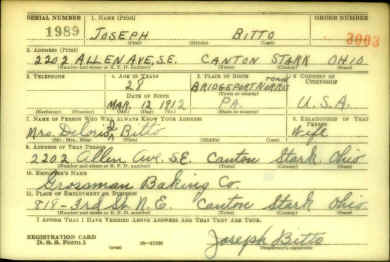 SERIAL NUMBER 1. NAME (Print) ORDER NUMBER
1989 JOSEPH BITTO 3003
(First) (Middle) (Last)
2. ADDRESS (Print)
2202 ALLEN AVE, S.E. CANTON STARK OHIO
3. TELEPHONE 4. AGE IN YEARS 5. PLACE OF BIRTH 6. COUNTRY OF CITIZENSHIP
28 BRIDGEPORT, NORRIS TOWN
DATE OF BIRTH
MAR. 12 1912 PA. U.S.A.
7. NAME OF PERSON WHO WILL ALWAYS KNOW YOUR ADDRESS 8. RELATIONSHIP OF THAT PERSON
Mrs. Bitto Wife
9. ADDRESS OF THAT PERSON
2202 Allen Ave. S.E. Canton Stark Ohio
10. EMPLOYER'S NAME
Grossman Baking Co.
11. PLACE OF EMPLOYMENT OR BUSINESS
819-3rd St. N.E. Canton Stark Ohio
I AFFIRM THAT I HAVE VERIFIED ABOVE ANSWERS AND THAT THEY ARE TRUE.
REGISTRATION CARD
D. S. S. FORM 1
Joseph Bitto